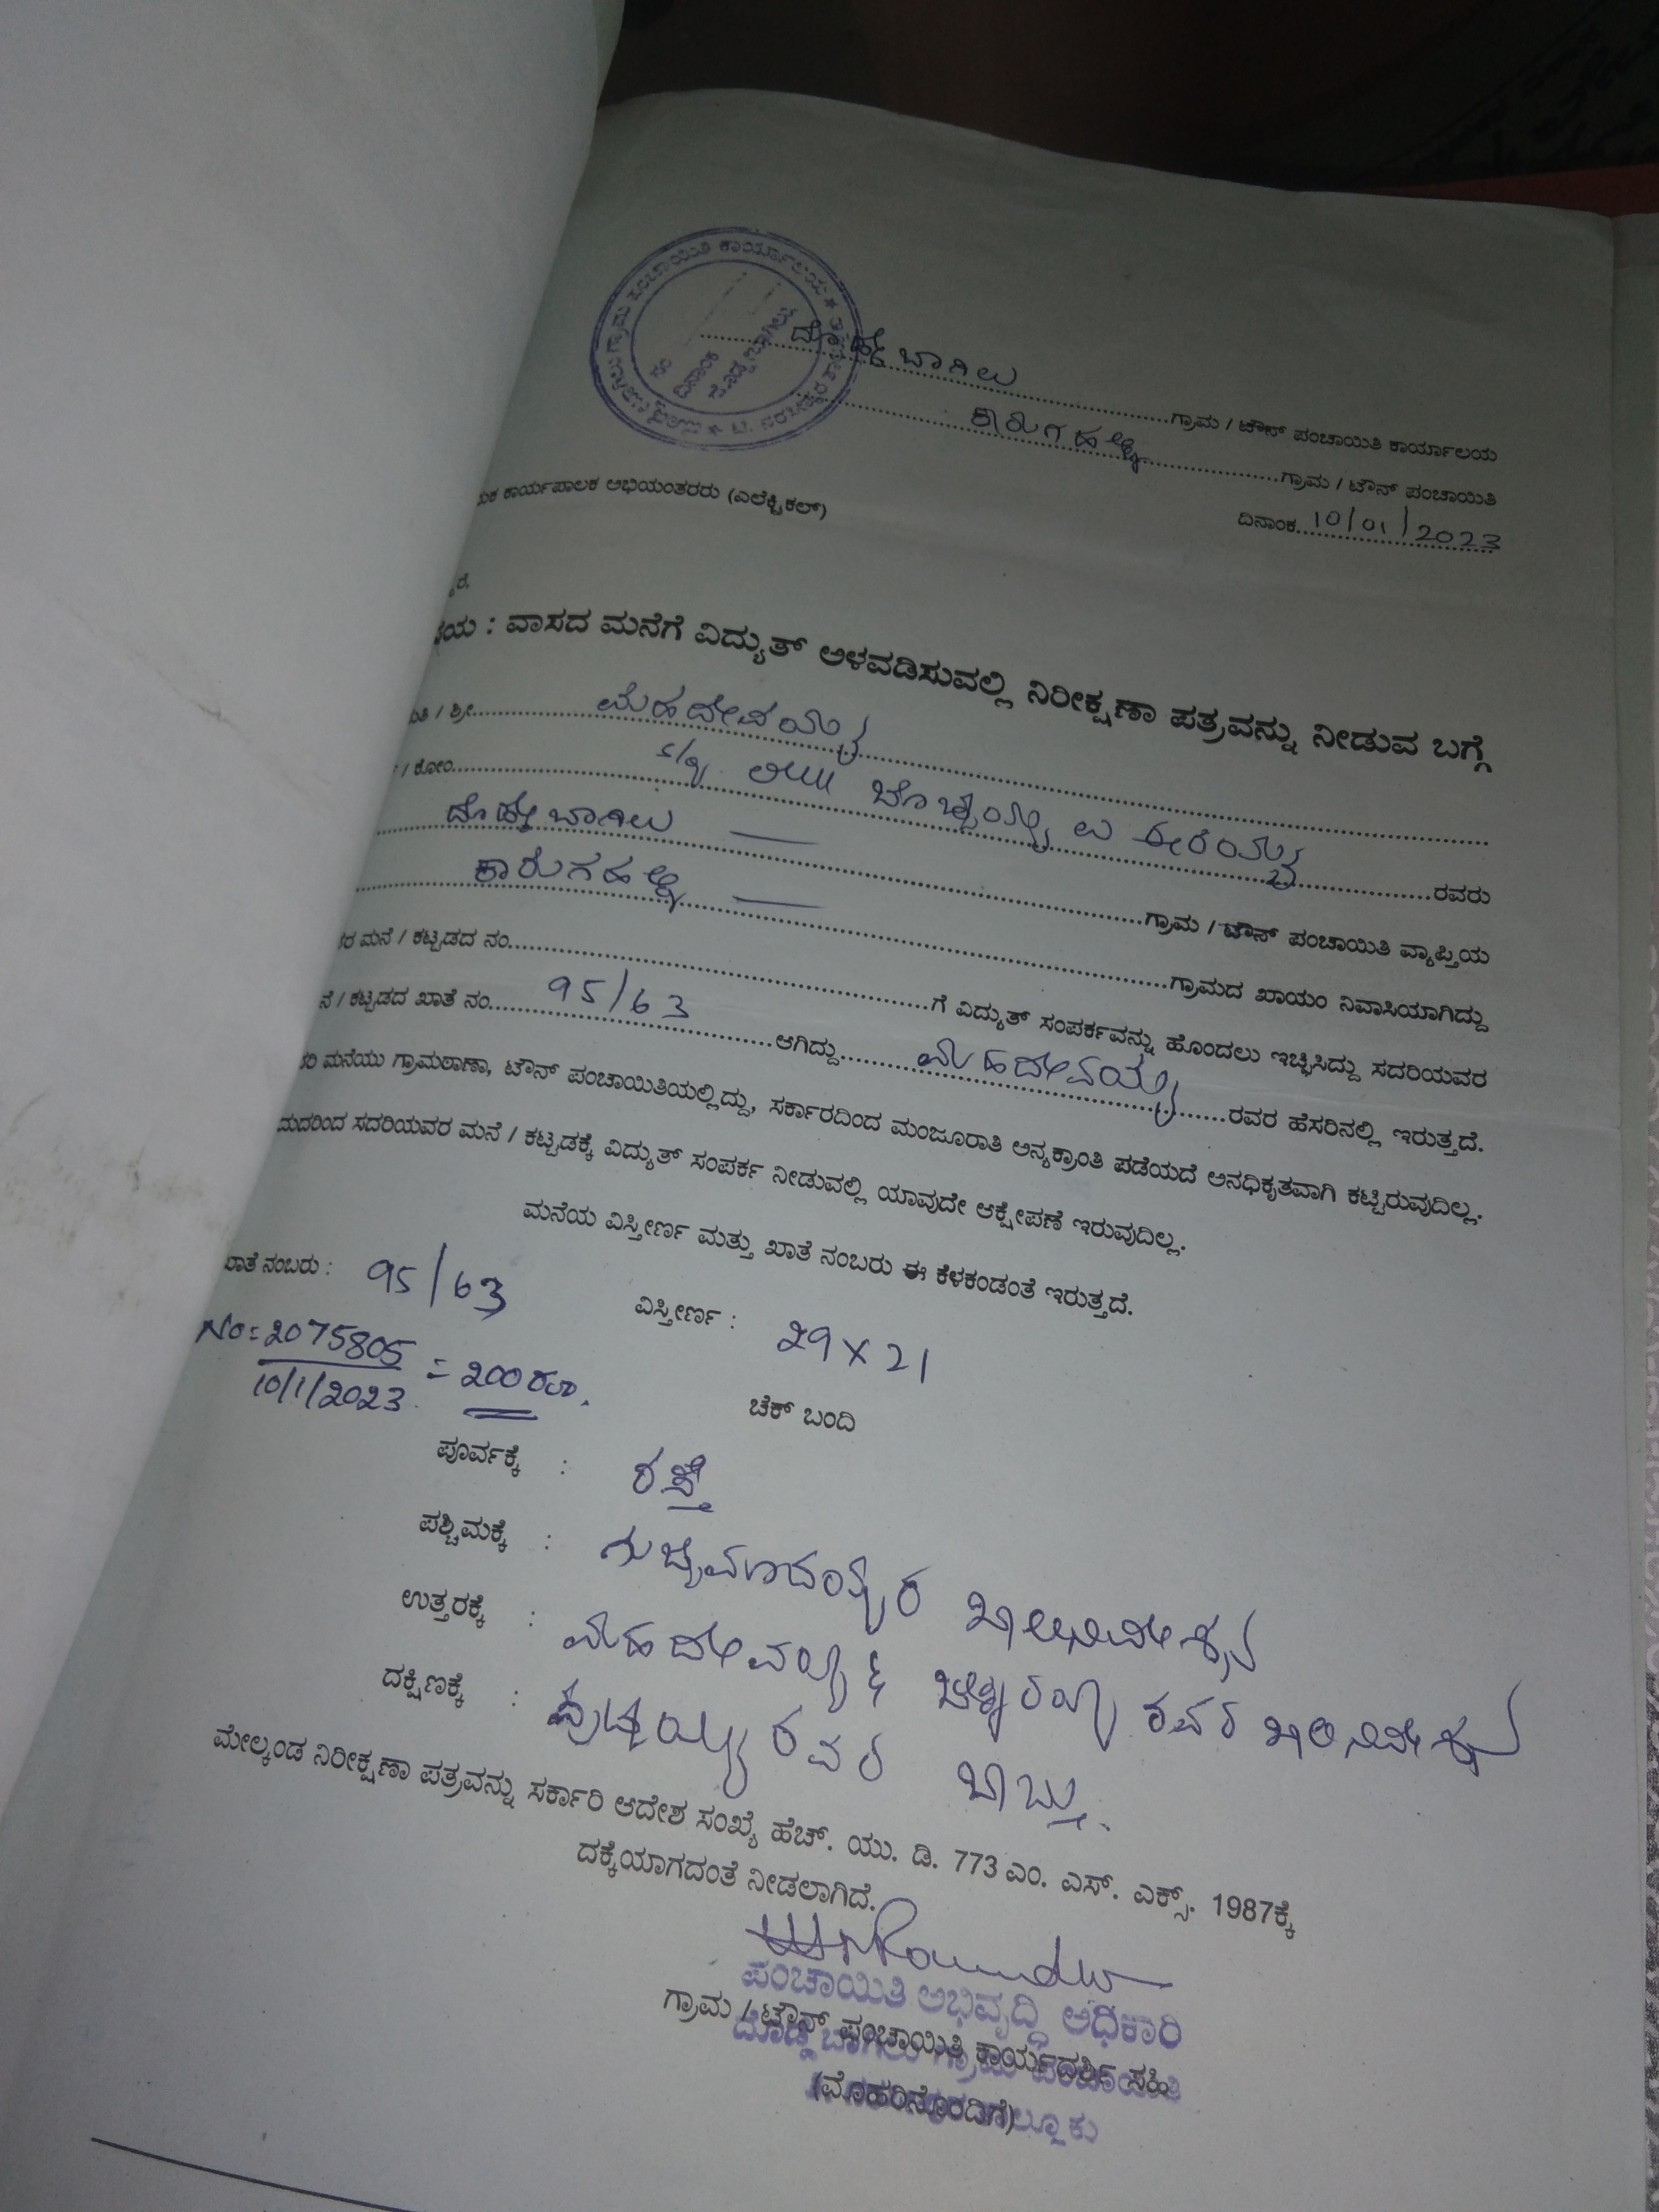 ಗ್ರಾಮ ಪಂಚಾಯಿತಿ ಕಾರ್ಯಾಲಯ *
ನಂ
ದಿನಾಂಕ
ದೊಡ್ಡಬಾಗಿಲು
ದೊಡ್ಡಬಾಗಿಲು ಗ್ರಾಮ / ಟೌನ್ ಪಂಚಾಯಿತಿ ಕಾರ್ಯಾಲಯ
ಕಾರುಗಹಳ್ಳಿ ಗ್ರಾಮ / ಟೌನ್ ಪಂಚಾಯಿತಿ
ಕಾರ್ಯಪಾಲಕ ಅಭಿಯಂತರರು (ಎಲೆಕ್ಟ್ರಿಕಲ್)
ದಿನಾಂಕ 10/01/2023
: ವಾಸದ ಮನೆಗೆ ವಿದ್ಯುತ್ ಅಳವಡಿಸುವಲ್ಲಿ ನಿರೀಕ್ಷಣಾ ಪತ್ರವನ್ನು ನೀಡುವ ಬಗ್ಗೆ
/ ಶ್ರೀ ಮಹದೇವಯ್ಯ
/ ಕೋಂ S/o ರವರು
ದೊಡ್ಡಬಾಗಿಲು ಗ್ರಾಮ / ಟೌನ್ ಪಂಚಾಯಿತಿ ವ್ಯಾಪ್ತಿಯ
ಕಾರುಗಹಳ್ಳಿ ಗ್ರಾಮದ ಖಾಯಂ ನಿವಾಸಿಯಾಗಿದ್ದು
ಮನೆ / ಕಟ್ಟಡದ ನಂ ಗೆ ವಿದ್ಯುತ್ ಸಂಪರ್ಕವನ್ನು ಹೊಂದಲು ಇಚ್ಛಿಸಿದ್ದು ಸದರಿಯವರ
/ ಕಟ್ಟಡದ ಖಾತೆ ನಂ 95/63 ಆಗಿದ್ದು ಮಹದೇವಯ್ಯ ರವರ ಹೆಸರಿನಲ್ಲಿ ಇರುತ್ತದೆ.
ಮನೆಯು ಗ್ರಾಮಠಾಣಾ, ಟೌನ್ ಪಂಚಾಯಿತಿಯಲ್ಲಿದ್ದು, ಸರ್ಕಾರದಿಂದ ಮಂಜೂರಾತಿ ಅನ್ಯಕ್ರಾಂತಿ ಪಡೆಯದೆ ಅನಧಿಕೃತವಾಗಿ ಕಟ್ಟಿರುವುದಿಲ್ಲ.
ಸದರಿಯವರ ಮನೆ / ಕಟ್ಟಡಕ್ಕೆ ವಿದ್ಯುತ್ ಸಂಪರ್ಕ ನೀಡುವಲ್ಲಿ ಯಾವುದೇ ಆಕ್ಷೇಪಣೆ ಇರುವುದಿಲ್ಲ.
ಮನೆಯ ವಿಸ್ತೀರ್ಣ ಮತ್ತು ಖಾತೆ ನಂಬರು ಈ ಕೆಳಕಂಡಂತೆ ಇರುತ್ತದೆ.
ಖಾತೆ ನಂಬರು : 95/63 ವಿಸ್ತೀರ್ಣ : 29 x 21
No: 2075805 = 200 ರೂ.
10/1/2023
ಚೆಕ್ ಬಂದಿ
ಪೂರ್ವಕ್ಕೆ : ರಸ್ತೆ
ಪಶ್ಚಿಮಕ್ಕೆ : ಖಾಲಿನಿವೇಶನ
ಉತ್ತರಕ್ಕೆ : ಮಹದೇವಯ್ಯ & ರವರ ಖಾಲಿ ನಿವೇಶನ
ದಕ್ಷಿಣಕ್ಕೆ : ಪುಟ್ಟಯ್ಯ ರವರ ಬಾಬ್ತು.
ಮೇಲ್ಕಂಡ ನಿರೀಕ್ಷಣಾ ಪತ್ರವನ್ನು ಸರ್ಕಾರಿ ಆದೇಶ ಸಂಖ್ಯೆ ಹೆಚ್. ಯು. ಡಿ. 773 ಎಂ. ಎಸ್. ಎಕ್ಸ್. 1987ಕ್ಕೆ
ದಕ್ಕೆಯಾಗದಂತೆ ನೀಡಲಾಗಿದೆ.
ಪಂಚಾಯಿತಿ ಅಭಿವೃದ್ಧಿ ಅಧಿಕಾರಿ
ಗ್ರಾಮ / ಟೌನ್ ಪಂಚಾಯಿತಿ ಕಾರ್ಯದರ್ಶಿ ಸಹಿ
ದೊಡ್ಡಬಾಗಿಲು ಗ್ರಾಮ ಪಂಚಾಯಿತಿ
(ಮೊಹರಿನೊಂದಿಗೆ)